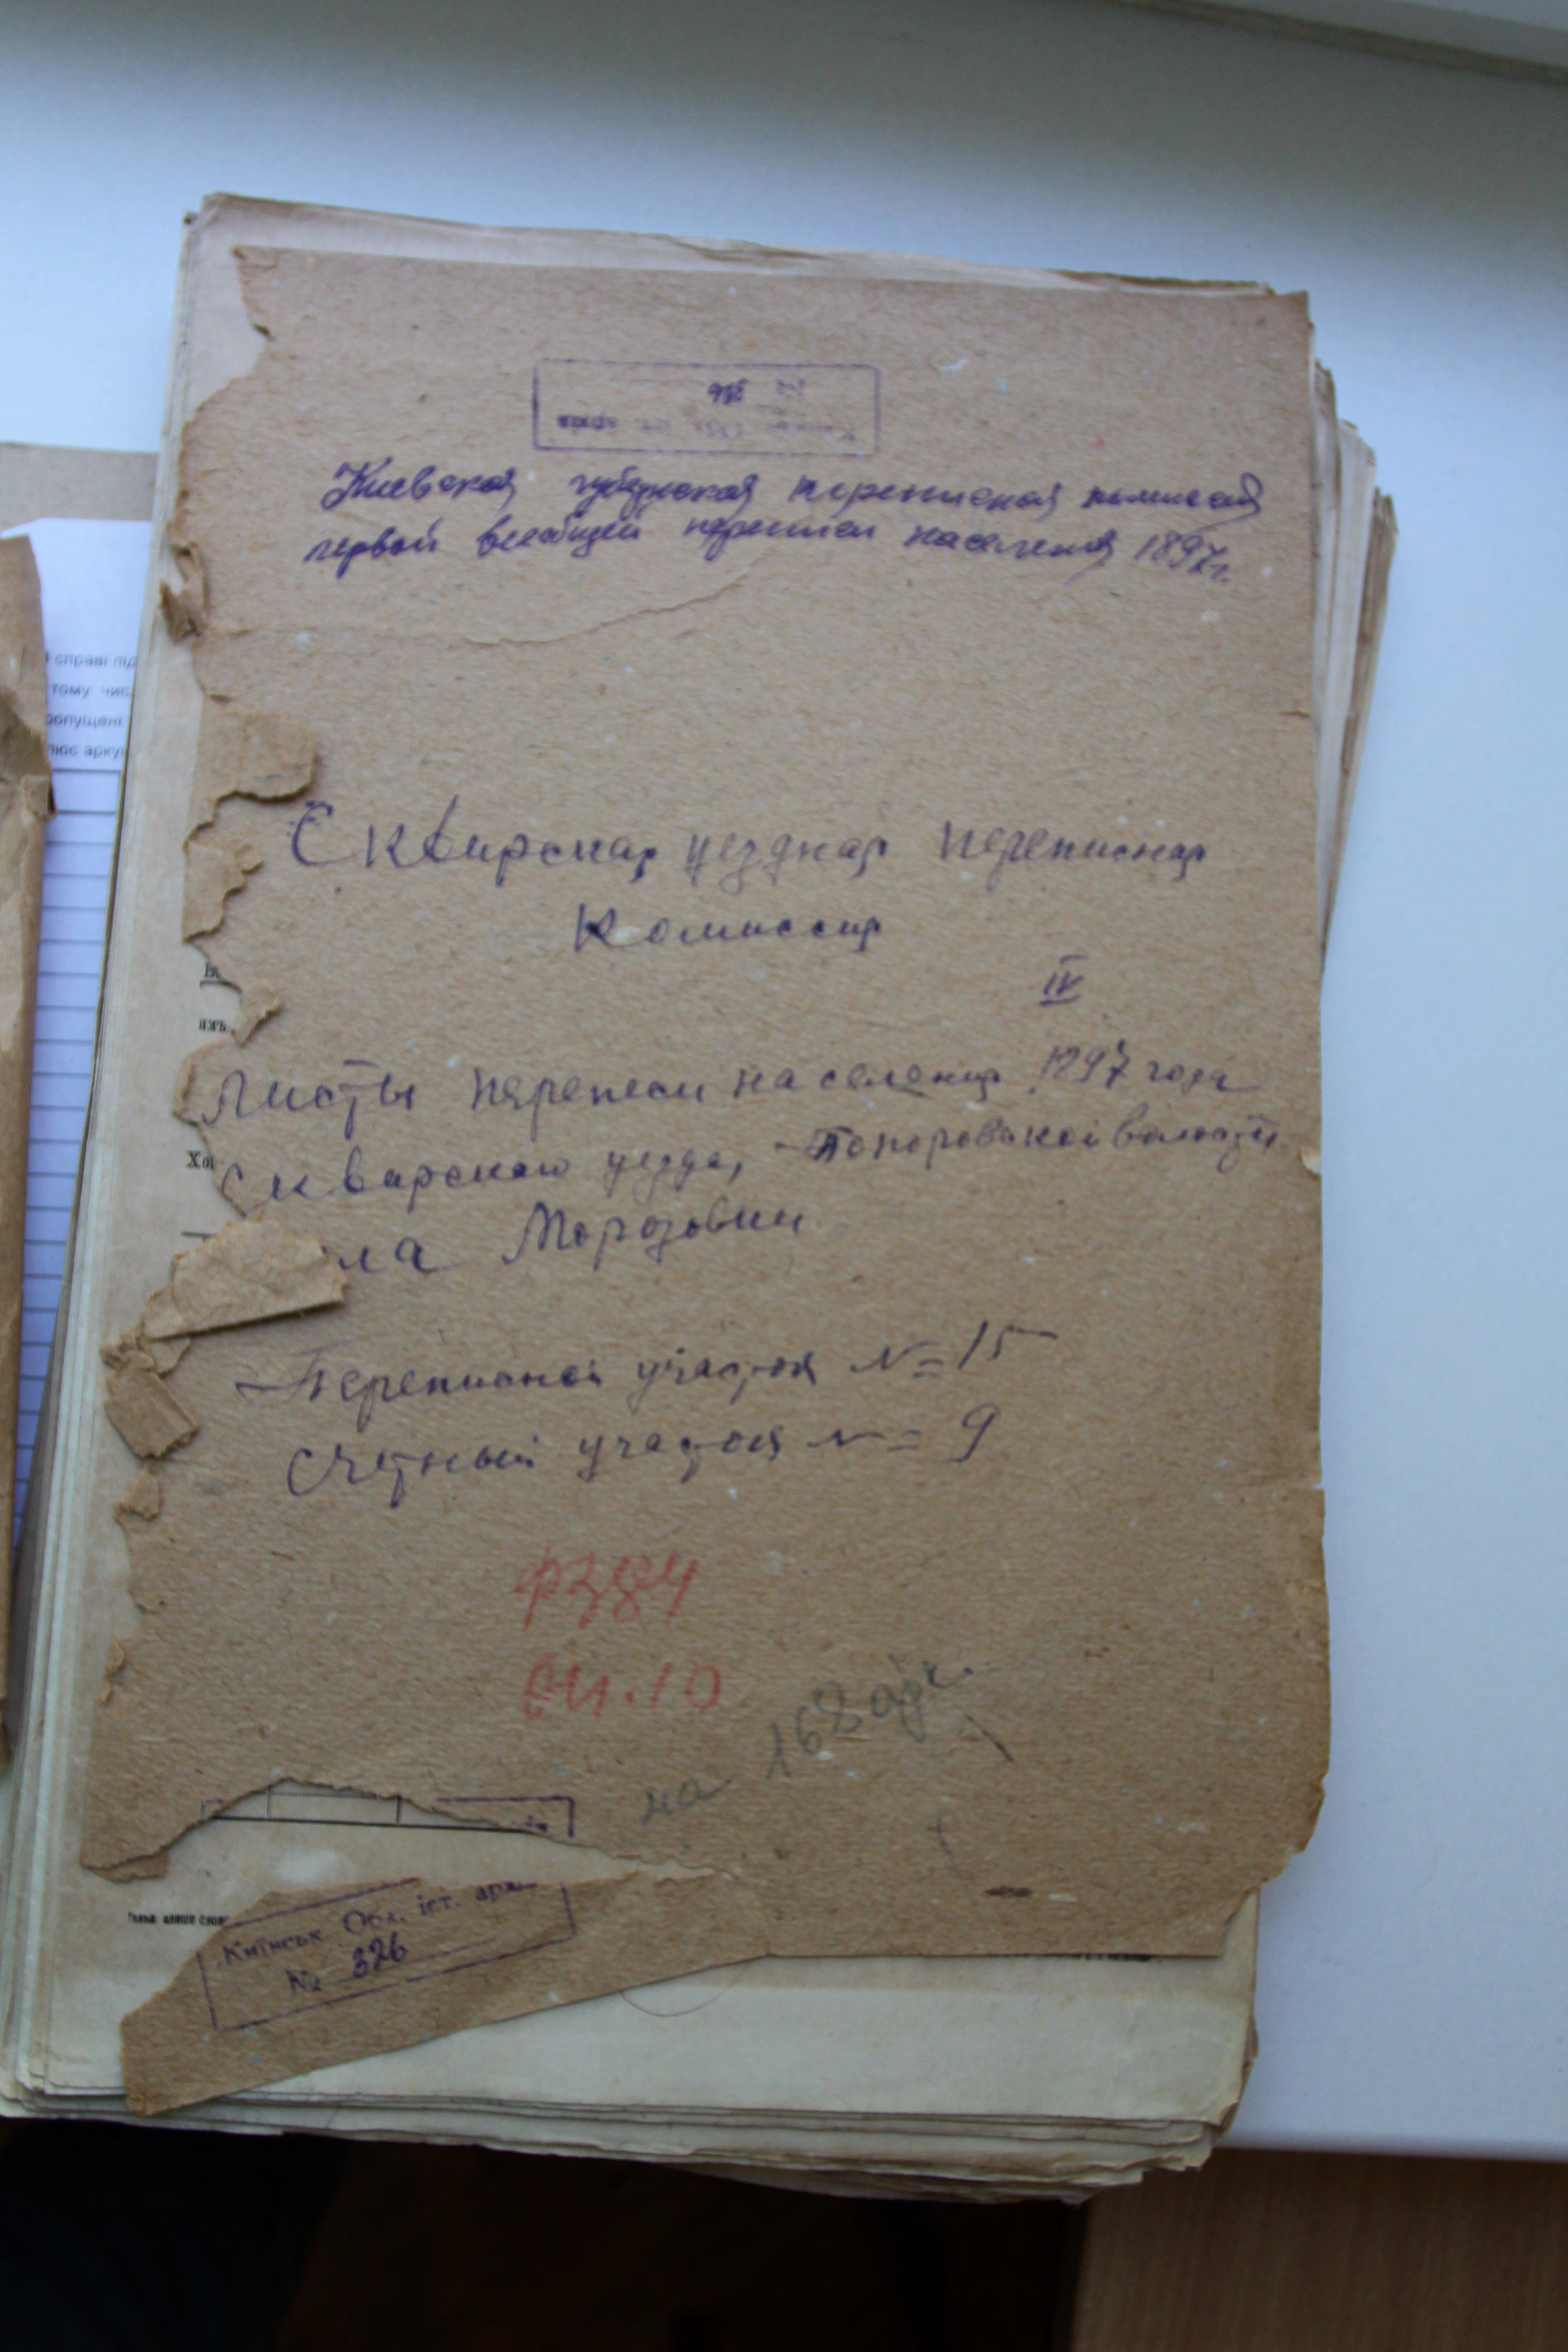 Київськ. Обл. іст. архів
№ 326
Киевская губернская переписная комиссия
первой всеобщей переписи населения 1897 г.
справі під
тому чис
опущені
Скверская уездная переписная
комиссия
IV
Листы переписи населения 1897 года
Сквирского уезда, Топоровской волости
ла Морозовки
Переписной участок № 15
Счетный участок № 9
Ф 384
оп. 10
на 168 арк.
Київськ. Обл. іст. арх.
№ 326